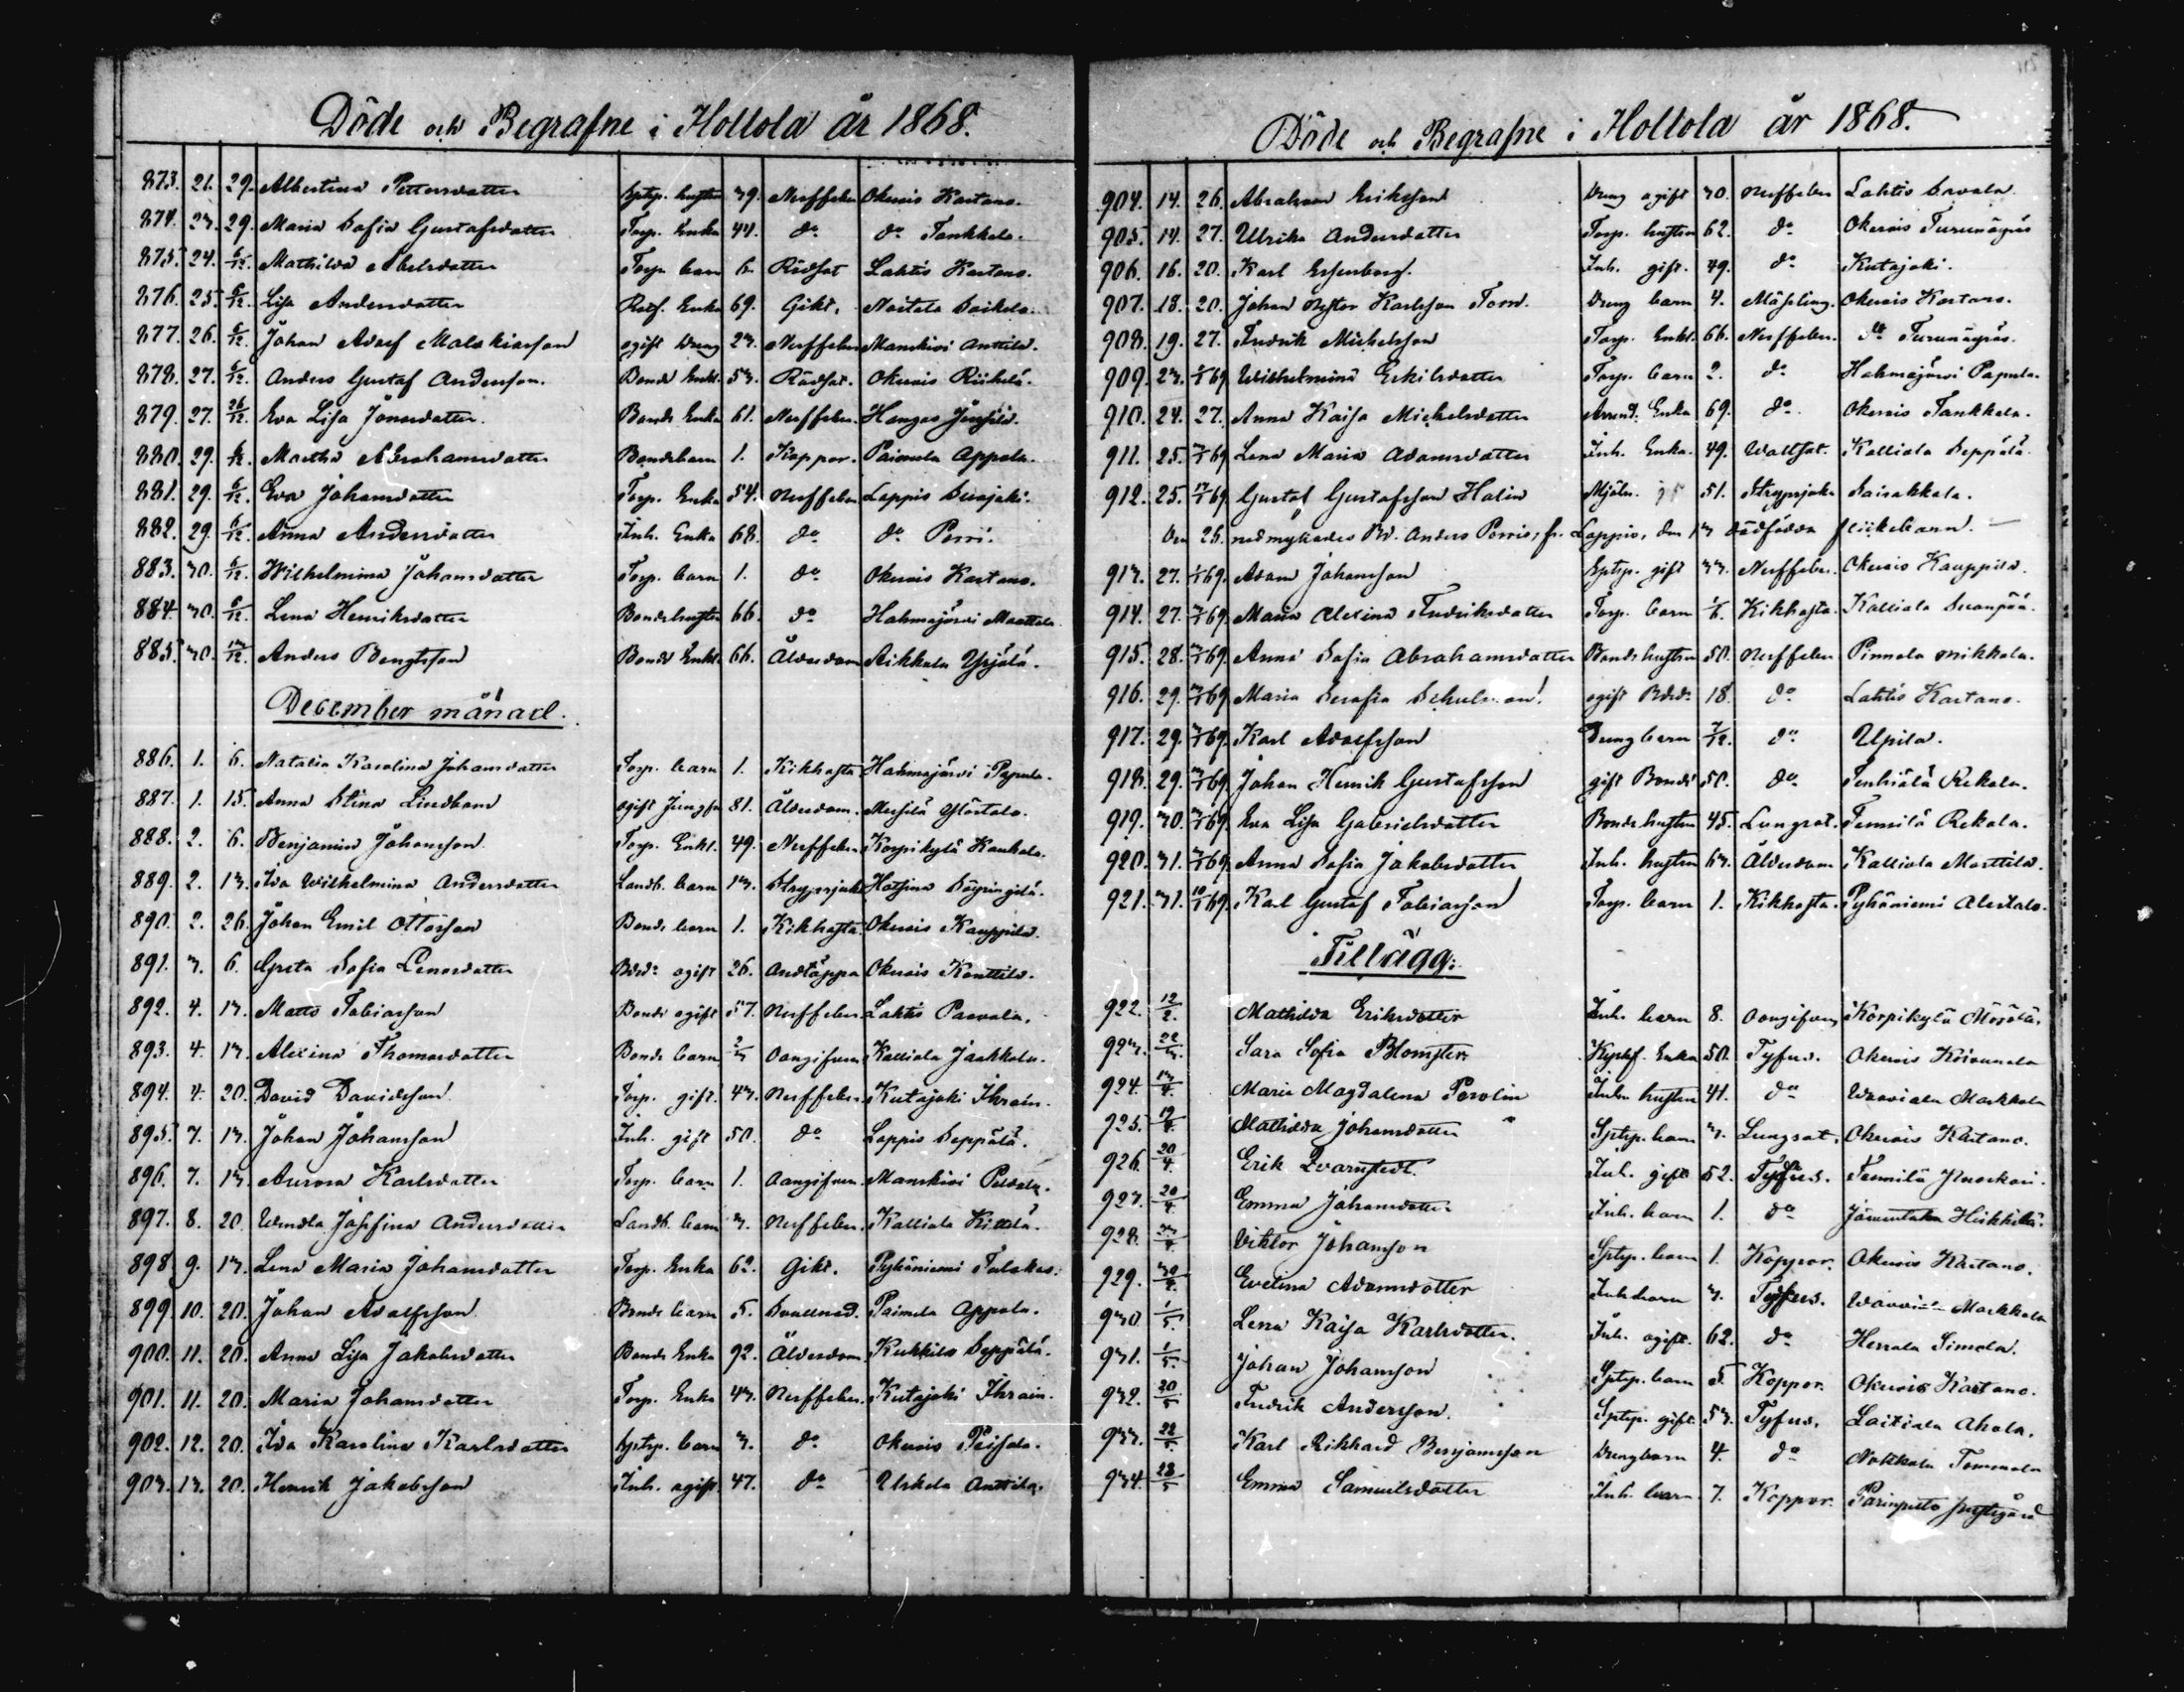 Döde och Begrafne i Hollola år 1868.
873. 21. 29. Albertina Pettersdotter hustru 39. Nerffeber Okerois Kartano.
874. 23. 29. Maria Sofia Gustafsdotter Torp. Enka 44. do do Tankkala.
875. 24. 6/12. Mathilda Abelsdotter Torp. barn 6. Rödsot Lahtis Kartano.
876. 25. 6/12. Lisa Andersdotter Enka 69. Gikt. Nostola
877. 26. 6/12. Johan Adolf Malakiasson ogift Dreng 23. Nerffeber Manskivi Anttila.
878. 27. 6/12. Anders Gustaf Andersson. Bonde Enkl. 53. Rödsot. Okerois Riihelä.
879. 27. 26/12. Eva Lisa Jönsdotter. Bonde Enka 61. Nerffeber. Hangas
880. 29. 6/12. Martha Abrahamsdotter Bondebarn 1. Koppor. Paimela Appola.
881. 29. 6/12. Eva Johansdotter Torp. Enka 54. Nerffeber Lappis
882. 29. 6/12. Anna Andersdotter Inh. Enka 68. do do Porri.
883. 30. 6/12. Wilhelmina Johansdotter Torp. barn 1. do Okerois Kartano.
884. 30. 6/12. Lena Henriksdotter Bondehustru 66. do Hahmajärvi Marttila
885. 30. 13/12. Anders Bengtsson Bonde Enkl. 66. Ålderdom Aikkala Yrjölä.
December månad.
886. 1. 6. Natalia Karolina Johansdotter Torp. barn 1. Kikhosta Hahmajärvi Papula.
887. 1. 15. Anna Stina Lindbom ogift Jungfru 81. Ålderdom. Messilä Ylöstalo.
888. 2. 6. Benjamin Johansson. Torp. Enkl. 49. Nerffeber Korpikylä Kaukola.
889. 2. 13. Ida Wilhelmina Andersdotter Landb. barn 13. Strypsjuka Hatsina
890. 2. 26. Johan Emil Ottosson Bonde barn 1. Kikhosta. Okerois Kauppila.
891. 3. 6. Greta Sofia Lenasdotter ogift 26. Andtäppa Okerois Konttila.
892. 4. 13. Matts Tobiasson Bonde ogift 57. Nerffeber Lahtis Paavola.
893. 4. 13. Alexina Thomasdotter Bonde barn 2/3 Oangifven Kalliola Jaakkola.
894. 4. 20. David Davidsson. Torp. gift. 43. Nerffeber. Kutajoki Ihrain.
895. 7. 13. Johan Johansson Inh. gift 50. do Lappis Seppälä.
896. 7. 13. Aurora Karlsdotter Torp. barn 1. Oangifven. Manskivi Peldola.
897. 8. 20. Wendla Josefina Andersdotter Landb. barn 3. Nerffeber. Kalliola
898. 9. 13. Lena Maria Johansdotter Torp. Enka 62. Gikt. Pyhäniemi
899. 10. 20. Johan Adolfsson Bonde barn 5. Paimela Appola.
900. 11. 20. Anna Lisa Jakobsdotter Bonde Enka 92. Ålderdom. Kukkila Seppälä.
901. 11. 20. Maria Johansdotter Torp. Enka 43. Nerffeber. Kutajoki Ihrain.
902. 12. 20. Ida Karolina Karlsdotter barn 3. do Okerois
903. 13. 20. Henrik Jakobsson Inh. ogift. 47. do Uskila Anttila.
Döde och Begrafne i Hollola år 1868.
904. 14. 26. Abraham Eriksson Dreng ogift 30. Nerffeber Lahtis
905. 14. 27. Ulrika Andersdotter Torp. hustru 62. do Okerois
906. 16. 20. Karl Inh. gift. 49. do Kutajoki.
907. 18. 20. Johan Nestor Karlsson Dreng barn 4. Mässling. Okerois Kartano.
908. 19. 27. Fredrik Michelsson Torp. Enkl. 66. Nerffeber. do
909. 23. 1/1 69 Wilhelmina Erkilsdotter Torp. barn 2. do Hahmajärvi Papula.
910. 24. 27. Anna Kaisa Michelsdotter Arrend. Enka 69. do Okerois Tankkala.
911. 25. 3/1 69 Lena Maria Adamsdotter Inh. Enka. 49. Wattsot. Kalliola Seppälä
912. 25. 17/1 69 Gustaf Gustafsson Halin Mjöln. 51. Strypsjuka Saisakkala.
Den 26. nedmyllades Bd. Anders Porris, fr. Lappis, den 13 dödfödda flickebarn.
913. 27. 1/1 69. Adam Johansson gift 33. Nerffeber. Okerois Kauppila.
914. 27. 3/1 69. Maria Alexina Fredriksdotter Torp. barn 1/6. Kikhosta. Kalliola
915. 28. 3/1 69. Anna Sofia Abrahamsdotter Bonde hustru 50. Nerffeber Pinnola Mikkola.
916. 29. 3/1 69. Maria Serafia ogift 18. do Lahtis Kartano.
917. 29. 3/1 69. Karl Adolfsson Drengbarn 7/12. do Upila.
918. 29. 3/1 69. Johan Henrik Gustafsson gift Bonde 50. do Rekola.
919. 30. 3/1 69. Eva Lisa Gabrielsdotter Bonde hustru 45. Lungsot. Tennilä Rekola.
920. 31. 3/1 69. Anna Sofia Jakobsdotter Inh. hustru 63. Ålderdom Kalliola Marttila.
921. 31. 10/1 69. Karl Gustaf Tobiasson Torp. barn 1. Kikhosta. Pyhäniemi Alestalo.
Tillägg:
922. 12/2. Mathilda Eriksdotter Inh. barn 8. Oangifven Korpikylä
923. 22/3. Sara Sofia Blomster Enka 50. Tyfus. Okerois
924. 13/4. Maria Magdalena Parolin Inh. hustru 41. do Waavia Markkola
925. 19/4. Mathilda Johansdotter barn 3. Lungsot. Okerois Kartano.
926. 20/4. Erik Qvarnstedt. Inh. gift 52. Tyfus. Tennilä
927. 20/4. Emma Johansdotter Inh. barn 1. do Heikkilä.
928. Viktor Johansson barn 1. Koppor. Okerois Kartano.
929. 30/4. Evelina Adamsdotter Inh. barn 3. Tyfus. Markkola
930. 1/5. Lena Kaisa Karlsdotter. Inh. ogift. 62. do Herrala Simola.
931. 1/5. Johan Johansson barn 5. Koppor. Okerois Kartano.
932. 20/5 Fredrik Andersson. gift. 53. Tyfus. Laitiala Ahola.
933. 22/5. Karl Rikhard Benjamsson Drengbarn 4. do Nokkola Tommola
934. 28/5 Emma Samuelsdotter Inh. barn 7. Koppor. Parinpelto